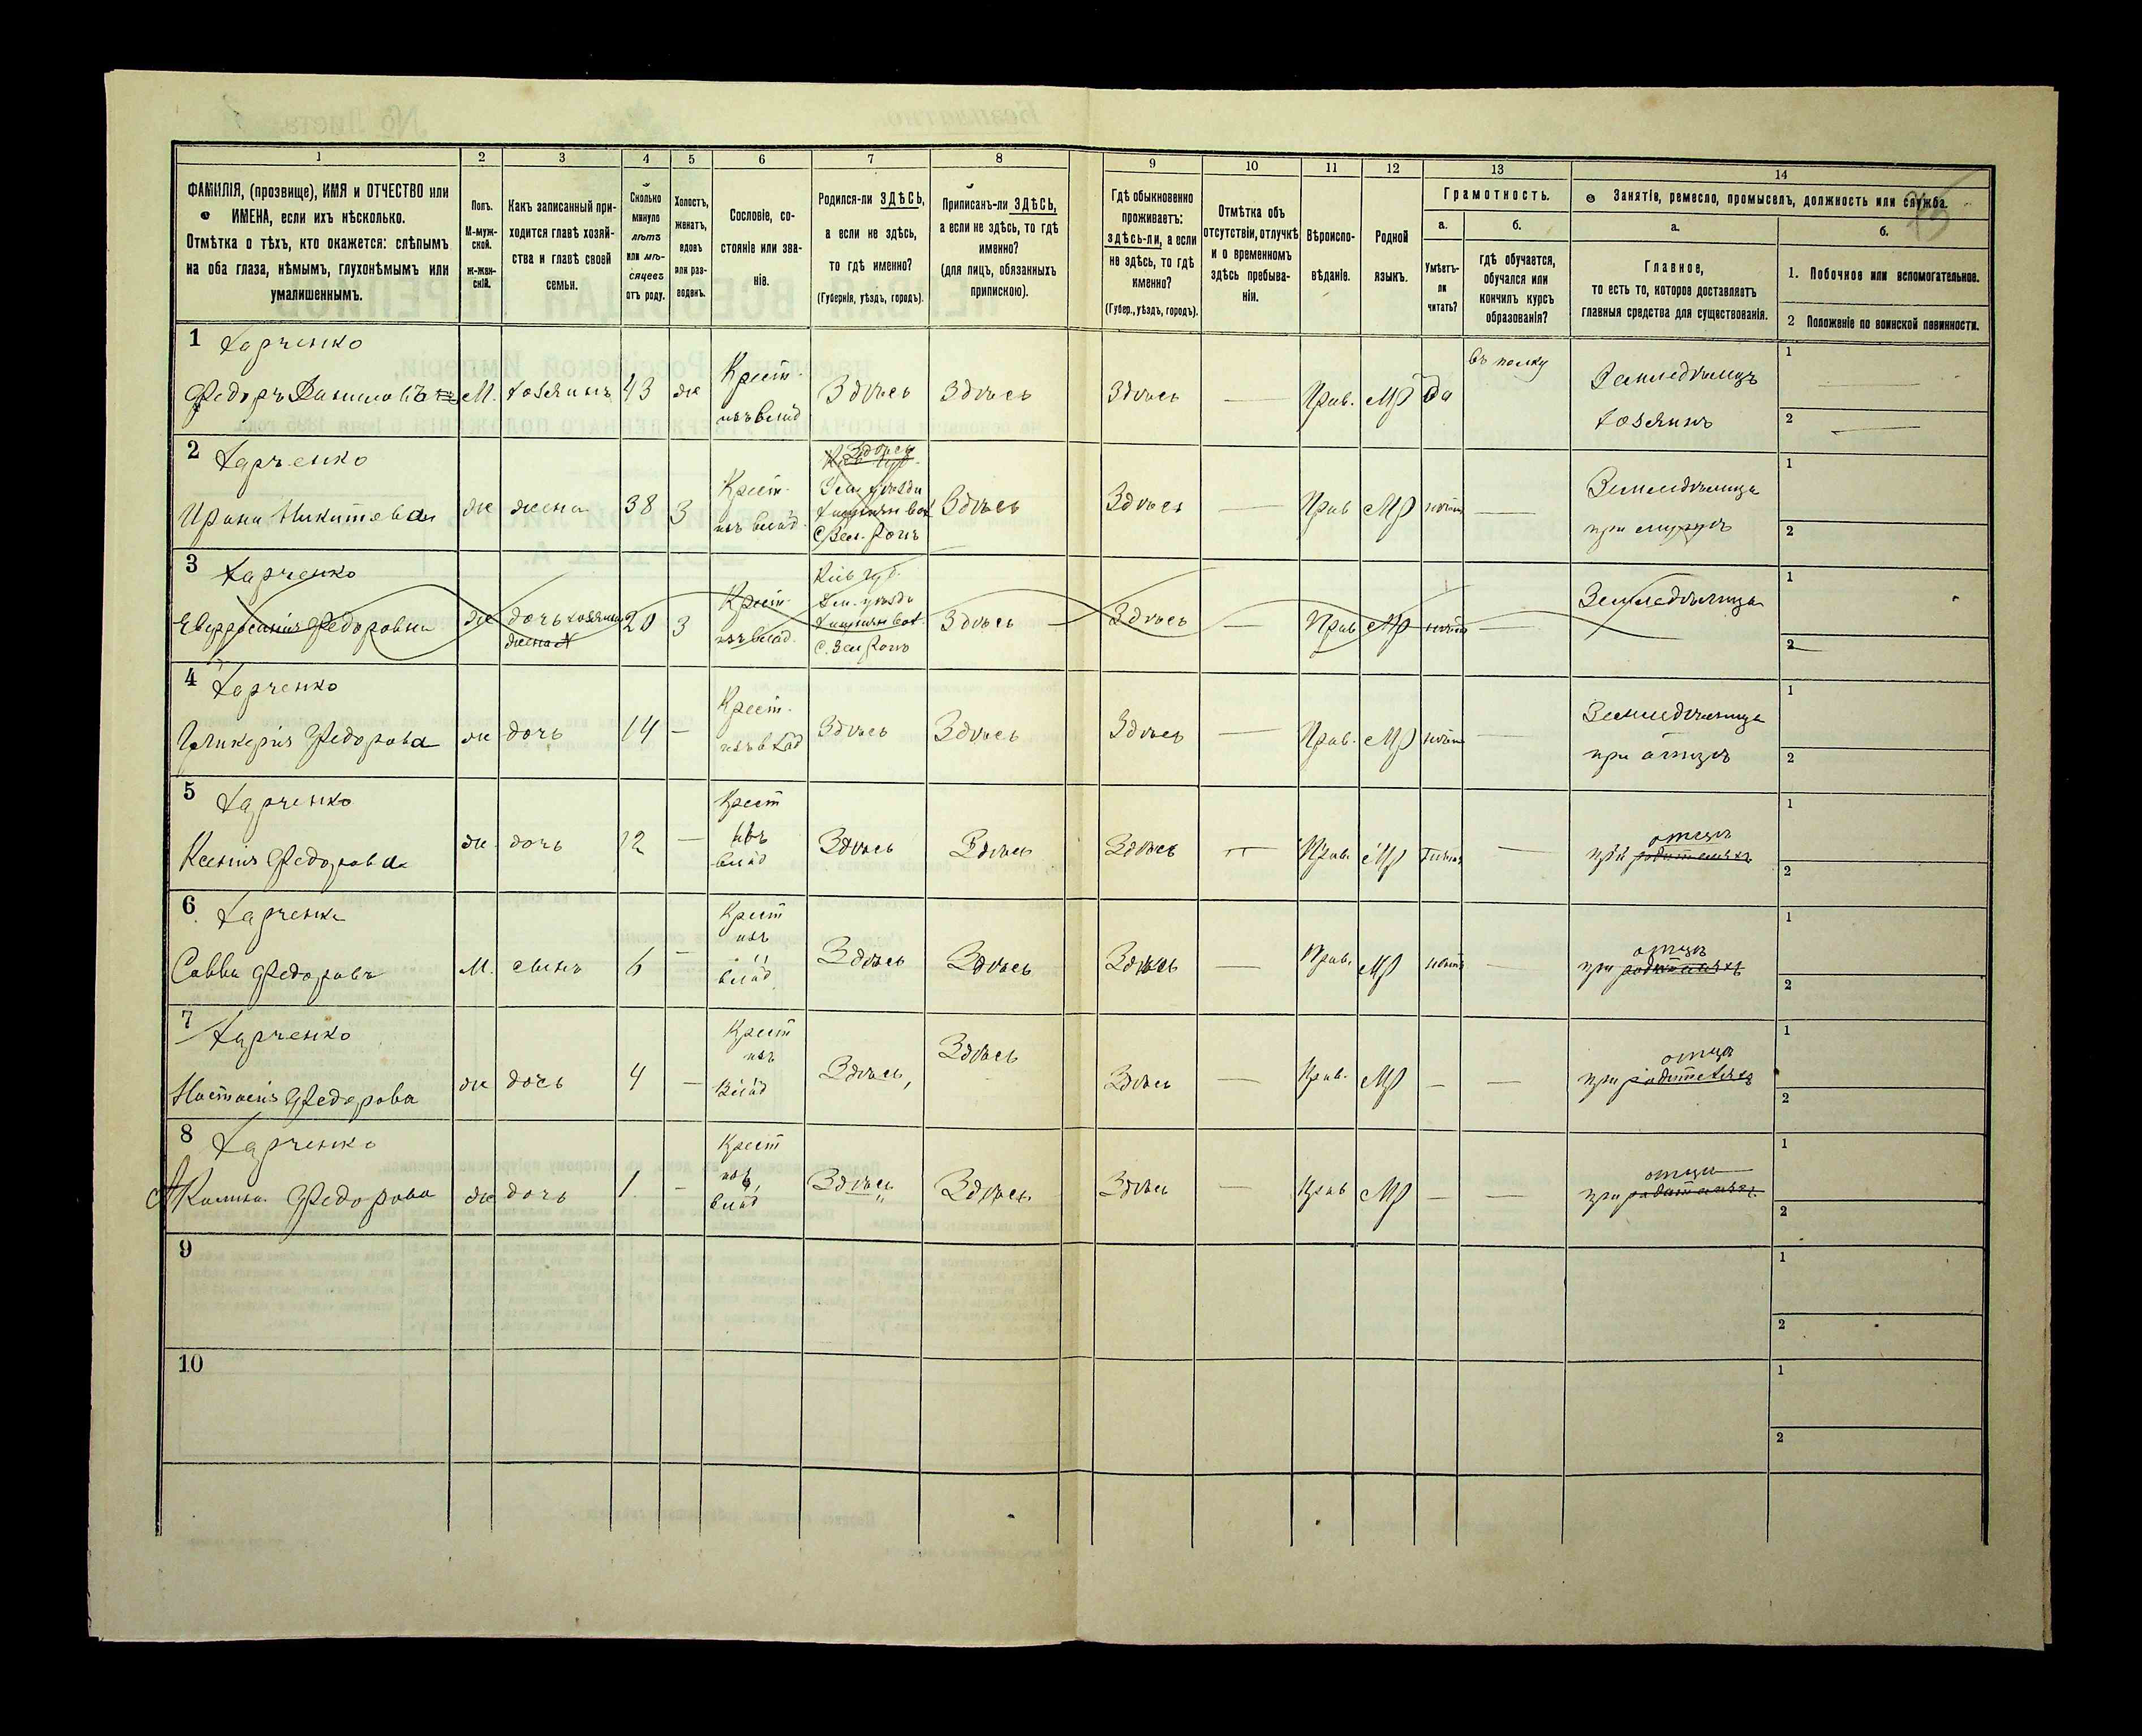 1 2 3 4 5 6 7 8 9 10 11 12 13 14
ФАМИЛІЯ, (прозвище), ИМЯ и ОТЧЕСТВО или
ИМЕНА, если ихъ нѣсколько.
Отмѣтка о тѣхъ, кто окажется: слѣпымъ
на оба глаза, нѣмымъ, глухонѣмымъ или
умалишеннымъ.
Полъ.
М-муж-
ской.
ж-жен-
скій.
Какъ записанный при-
ходится главѣ хозяй-
ства и главѣ своей
семьи.
Сколько
минуло
лѣтъ
или мѣ-
сяцевъ
отъ роду.
Холостъ,
женатъ,
вдовъ
или раз-
веденъ.
Сословіе, со-
стояніе или зва-
ніе.
Родился-ли ЗДѢСЬ,
а если не здѣсь,
то гдѣ именно?
(Губернія, уѣздъ, городъ).
Приписанъ-ли ЗДѢСЬ,
а если не здѣсь, то гдѣ
именно?
(для лицъ, обязанныхъ
припискою).
Гдѣ обыкновенно
проживаетъ:
здѣсь-ли, а если
не здѣсь, то гдѣ
именно?
(Губер., уѣздъ, городъ).
Отмѣтка объ
отсутствіи, отлучкѣ
и о временномъ
здѣсь пребыва-
ніи.
Вѣроиспо-
вѣданіе.
Родной
языкъ.
Грамотность.
а.
Умѣетъ-
ли
читать?
б.
гдѣ обучается,
обучался или
кончилъ курсъ
образованія?
Занятіе, ремесло, промыселъ, должность или служба.
а.
Главное,
то есть то, которое доставляетъ
главныя средства для существованія.
б.
1. Побочное или вспомогательное.
2 Положеніе по воинской повинности.
1 Харченко
Федоръ Даниловъ М. хозяинъ 43 ж Крест. изъ влад Здѣсь Здѣсь Здѣсь — Прав. МР да въ полку Земледѣлецъ хозяинъ
1
2
2 Харченко
Ирина Никитева ж жена 38 З Крест. изъ влад. Здѣсь Здѣсь Здѣсь — Прав МР нѣтъ — Земледѣлица при мужѣ
1
2
3 Харченко
Евфросинія Федоровна ж дочь хозяина жена 20 З Крест. изъ влад. Кіев губ. Здѣсь Здѣсь — Прав МР нѣтъ — Земледѣлица
1
2
4 Харченко
Гликерія Федорова ж дочь 14 — Крест. изъ влад Здѣсь Здѣсь Здѣсь — Прав. МР нѣтъ — Земледѣлица при отцѣ
1
2
5 Харченко
Ксенія Федорова ж дочь 12 — Крест изъ влад Здѣсь Здѣсь Здѣсь Прав. МР — при родителяхъ отцѣ
1
2
6 Харченко
Савва Федоровъ М. сынъ 6 — Крест изъ влад Здѣсь Здѣсь Здѣсь — Прав. МР нѣтъ — при родителяхъ отцѣ
1
2
7 Харченко
Настасія Федорова ж дочь 4 — Крест изъ влад Здѣсь Здѣсь Здѣсь — Прав. МР — — при родителяхъ отцѣ
1
2
8 Харченко
Акилина Федорова ж дочь 1 — Крест изъ влад Здѣсь Здѣсь Здѣсь — Прав МР — — при родителяхъ отцѣ
1
2
9
1
2
10
1
2